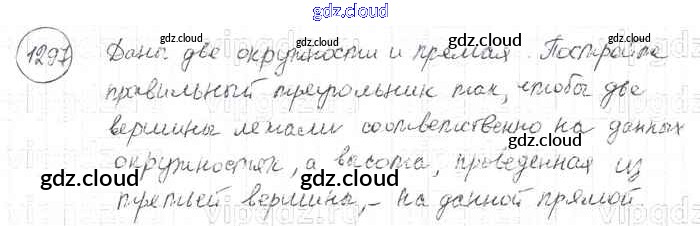 gdz.cloud
1297 Даны две окружности и прямая. Постройте
gdz.cloud gdz.cloud
правильный треугольник так, чтобы две
вершины лежали соответственно на данных
gdz.cloud
окружностях, а высота, проведенная из
gdz.cloud gdz.cloud
третьей вершины, - на данной прямой
gdz.cloud